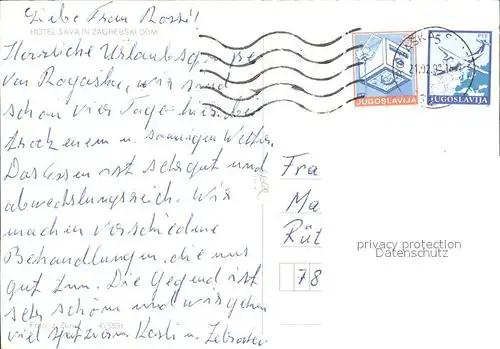 Liebe Frau Rossi!
HOTEL SAVA IN ZAGREBŠKI DOM
Herrliche Urlaubsgrüsse
von Rogaska, wir sind
schon vier Tage hier bei
trockenem u. sonnigen Wetter.
Das Essen ist sehr gut und
abwechslungsreich. Wir
machen verschiedene
Behandlungen, die uns
gut tun. Die Gegend ist
sehr schön und wir gehen
viel spazieren
JUGOSLAVIJA
5
PTT
JUGOSLAVIJA
Fra
Ma
Rüt
78
privacy protection
Datenschutz